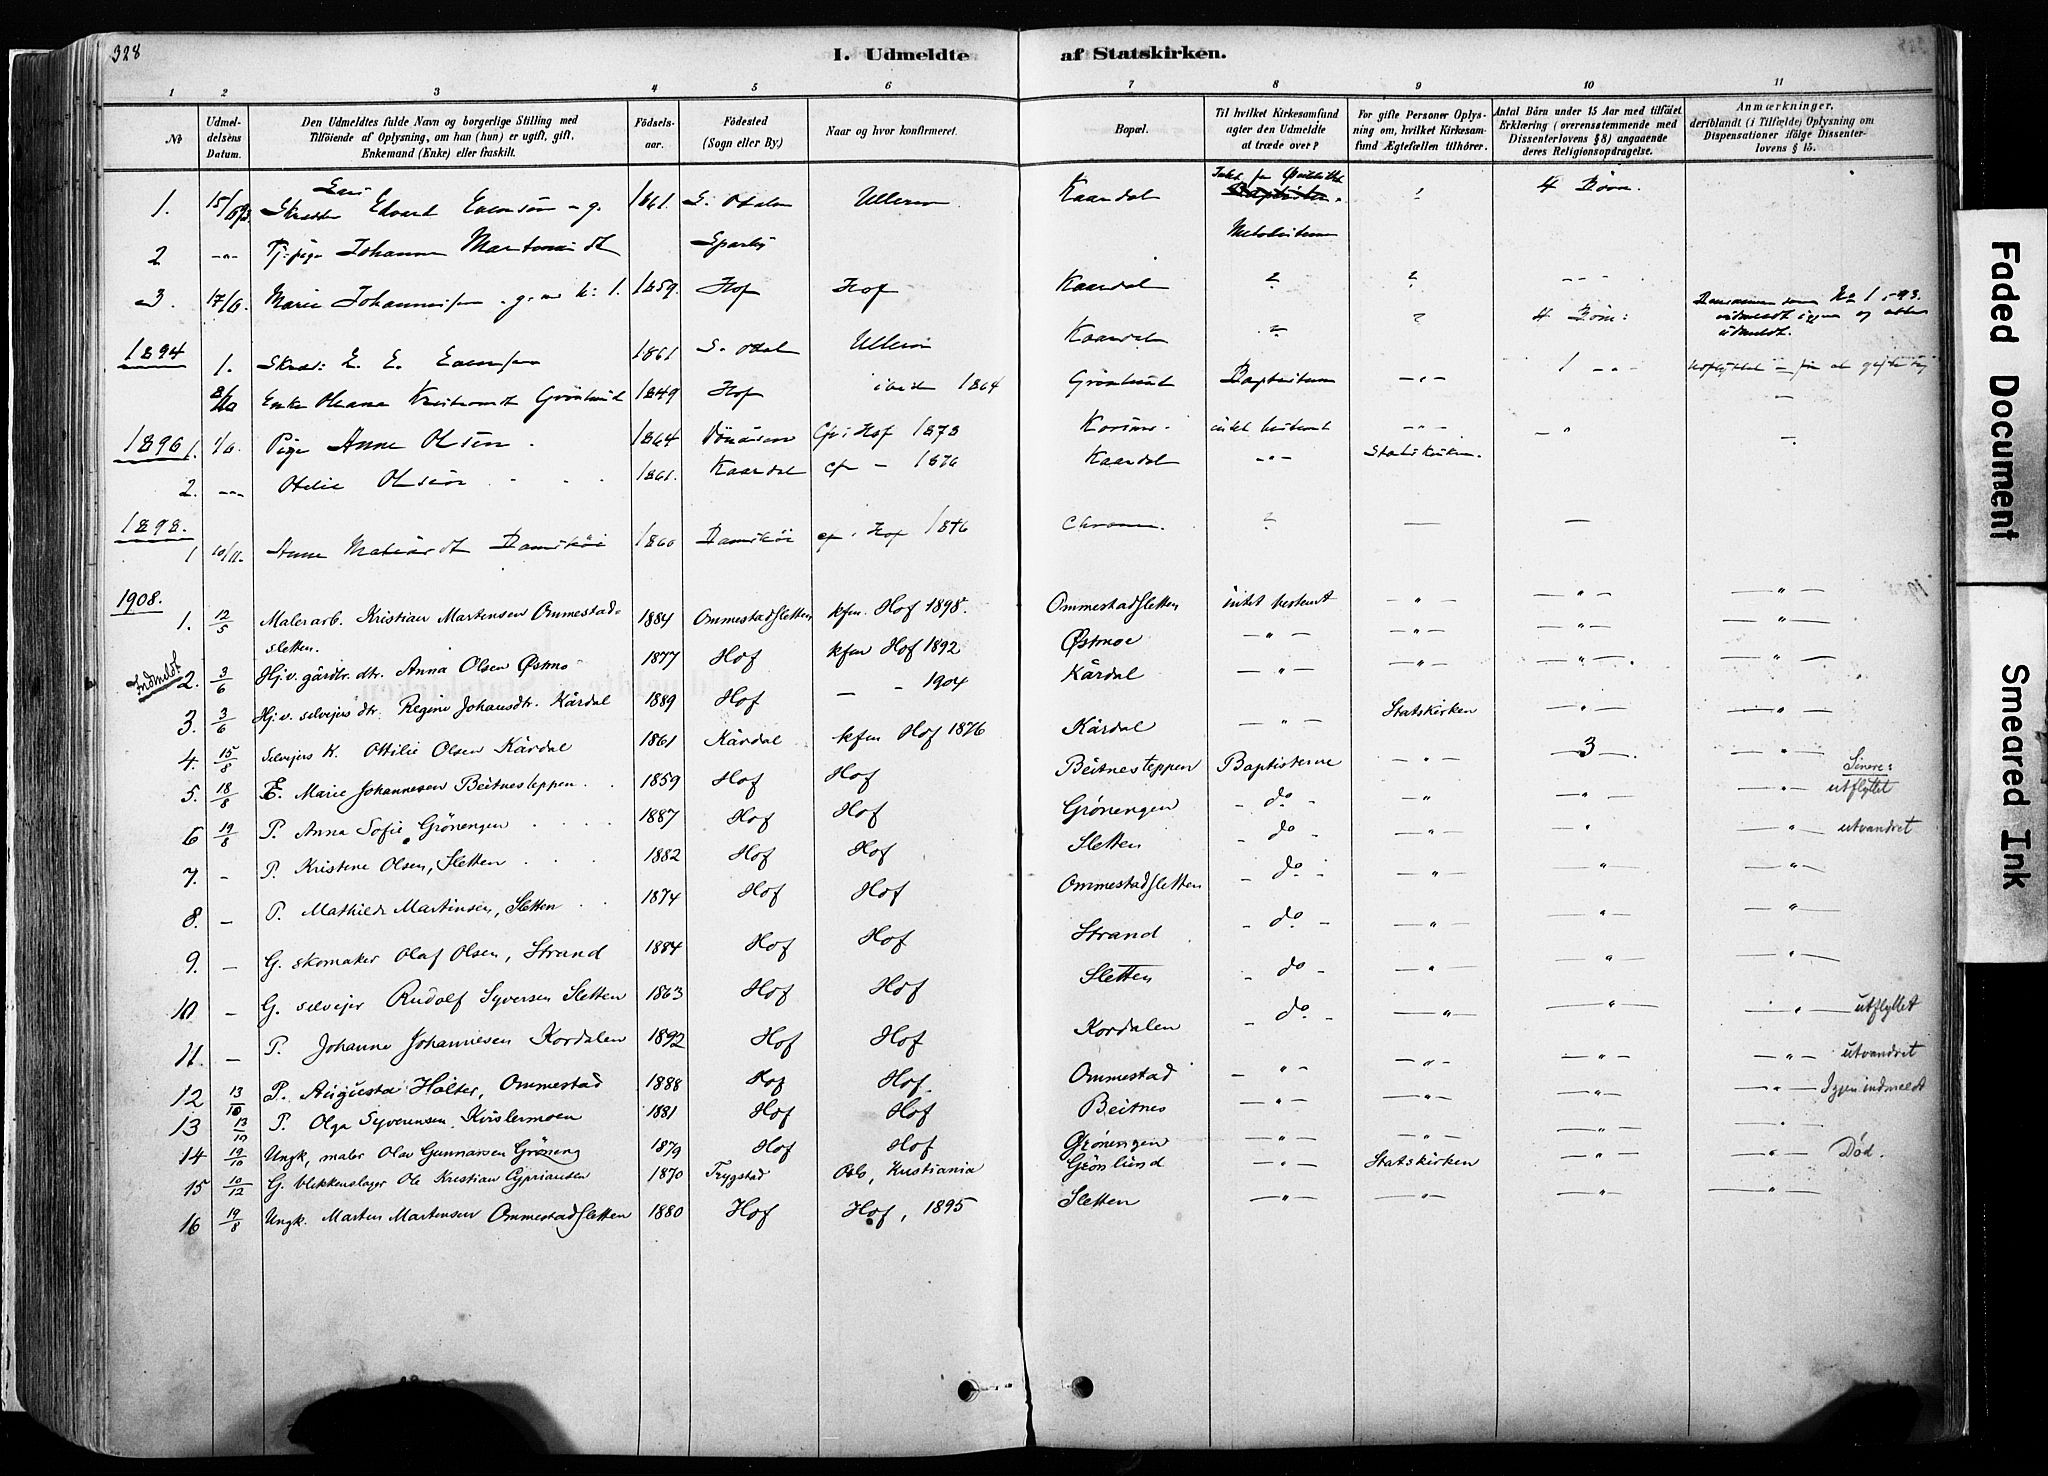 328
I. Udmeldte af Statskirken.
1 2 3 4 5 6 7 8 9 10 11
No
Udmeldelsens Datum.
Den Udmeldtes fulde Navn og borgerlige Stilling med Tilföiende af Oplysning, om han (hun) er ugift, gift, Enkemand (Enke) eller fraskilt.
Födselsaar.
Födested (Sogn eller By.)
Naar og hvor konfirmeret.
Bopæl.
Til hvilket Kirkesamfund agter den Udmeldte at træde over?
For gifte Personer Oplysning om, hvilket Kirkesamfund Ægtefællen tilhörer.
Antal Börn under 15 Aar med tilföiet Erklæring (overensstemmende med Dissenterlovens §8) angaaende deres Religionsopdragelse.
Anmærkninger, deriblandt (i Tilfælde) Oplysning om Dispensationer ifölge Dissenterlovens § 15.
1. 15/ Edvard Evensen - g. 1861. S. Odalen Ullern Kaardal 4 Börn.
2 -"- Johanne Metodisterne
3. 17/6. Marie Johannesen - g. 1859. Hof Hof Kaardal
1894 1. E. E. Evensen 1861 S. Odal Ullern Kaardal 4 Börn:
Enke Oleana Grönlund 1849 Hof 1864 Grönlund Baptisterne -"- 1
1896 1. 1/6. Pige Anne Olsen. 1864 Hof 1878 intet bestemt -"-
2. -"- Otilie Olsen 1861. Kaardal - 1876 Kaardal -"- Statskirken.
1898. 1 10/11. Anne Damsköi 1860 Damsköi Hof 1876
1908.
1. 12/5 Malerarb. Kristian Martensen Ommestadsletten. 1884 Ommestadsletten kfm. Hof 1898. Ommestadsletten intet bestemt -"- -"- -"-
Indmeldt 2. 3/6 Hjv. gårdbr. dtr. Anna Olsen Østmo 1877 Hof kfm Hof 1892 Østmoe -"- -"- -"- -"-
3. 3/6 Hj. v. selvejers dtr. Regine Johansdtr. Kårdal 1889 Hof - - 1904 Kårdal -"- -"- -"- -"-
4. 15/8 Selvejers K. Ottilie Olsen Kårdal 1861 Kårdal kfm Hof 1876 Kårdal -"- Statskirken -"- -"-
5. 18/8 E. Marie Johannesen Beitnesteppen. 1859 Hof Hof Beitnesteppen Baptisterne -"- 3 -"-
6 19/8 P. Anna Sofie Grönengen 1887 Hof Hof Grönengen - do - -"- -"- -"- utflyttet
7. - P. Kristene Olsen, Sletten 1882 Hof Hof Sletten - do - -"- -"- -"- utvandret
8. - P. Mathilde Martinsen, Sletten 1874 Hof Hof Ommestadsletten - do - -"- -"- -"-
9. - G. skomaker Olaf Olsen, Strand 1884 Hof Hof Strand - do - -"- -"- -"-
10 - G. selvejer Rudolf Syversen Sletten 1863 Hof Hof Sletten - do - -"- -"- -"-
11. - P. Johanne Johannesen Kordalen 1892 Hof Hof Kordalen - do - -"- -"- -"- utflyttet
12 13/10 P. Augusta Holter, Ommestad 1888 Hof Hof. Ommestad -"- -"- -"- -"- utvandret
13 13/10 P. Olga Syverensen, Kvislermoen 1881 Hof Hof Beitnes -"- -"- -"- -"- Igjen indmeldt
14 19/10 Ungk, maler Olav Gunnarsen Gröneng 1879 Hof Hof Grönengen -"- -"- -"- -"-
15 10/12 G. blikkenslager Ole Kristian Cyprianssen 1870 Trygstad Oslo, Kristiania Grönlund -"- Statskirken -"- -"- Død.
16 19/8 Ungk. Marten Martensen Ommestadsletten 1880 Hof Hof, 1895 Sletten -"- -"- -"- -"-
Faded Document
Smeared Ink